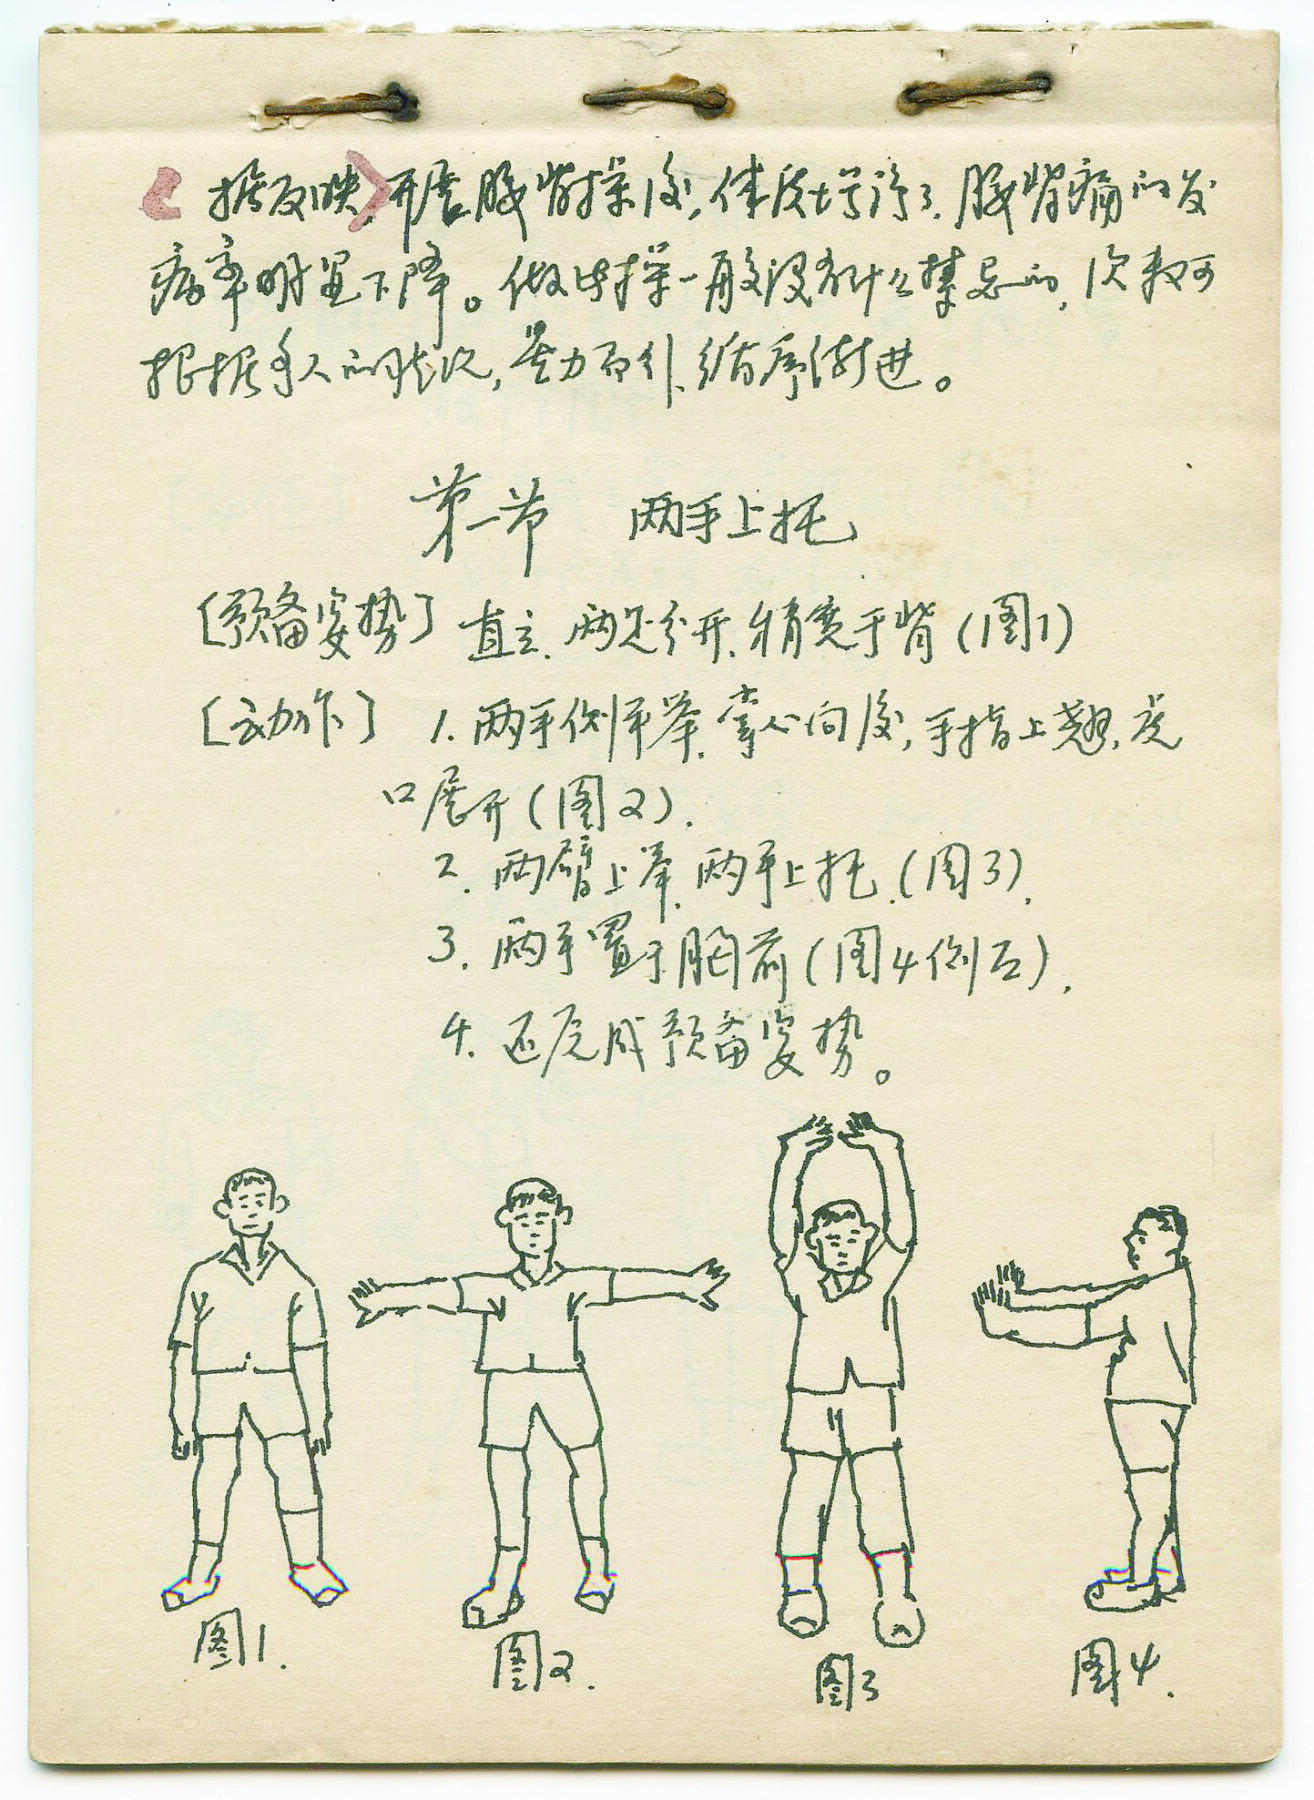 据反映开展腰背操后,体质增强了、腰背痛的发
病率明显下降。做此操一般没有什么禁忌的,次数可
根据个人的状况,量力而行、循序渐进。
第一节 两手上托
[预备姿势] 直立、两足分开、稍宽于肩(图1)
[动作] 1.两手侧平举、掌心向后,手指上翘、虎
口展开(图2).
2.两臂上举、两手上托.(图3).
3.两手置于胸前(图4侧面).
4.还原成预备姿势。
图1.
图2.
图3
图4.